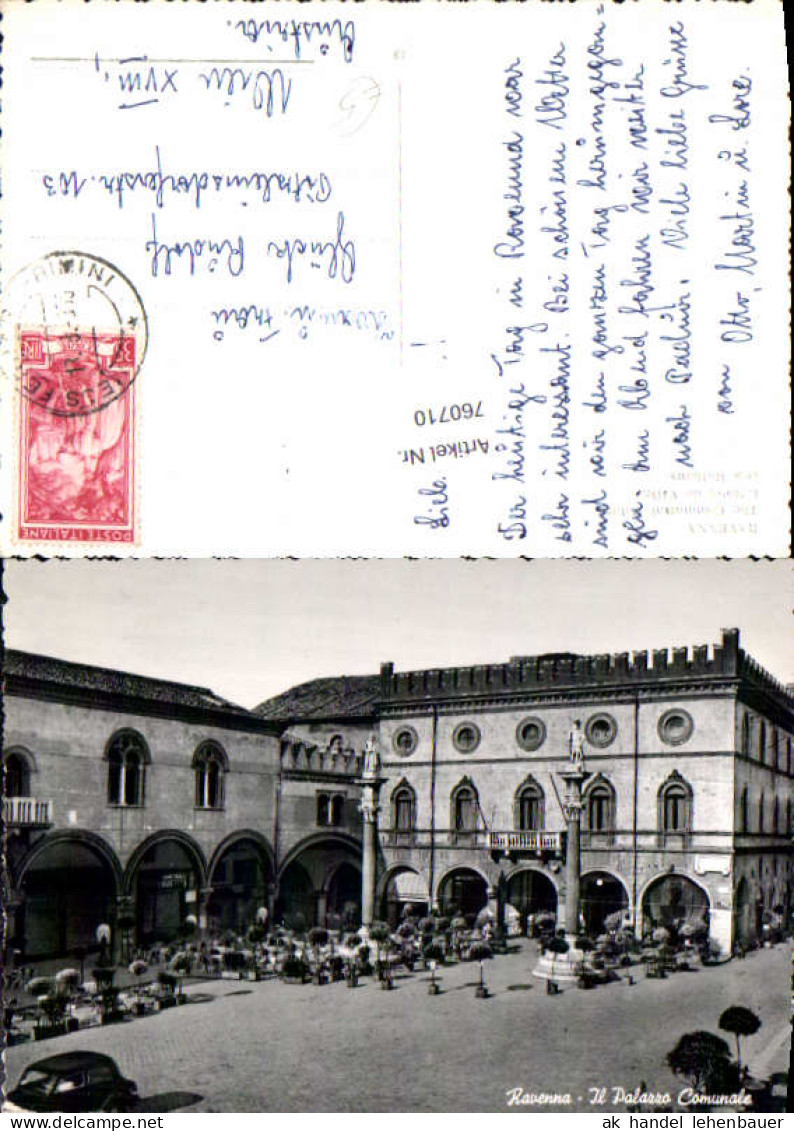 Der heutige Tag in Ravenna war
sehr interessant. Bei schönem Wetter
sind wir den ganzen Tag herumgegan=
gen. Am Abend fahren wir weiter
nach Padua. Viele liebe Grüsse
von Otto, Martin u. Lore.
Rudolf
103
Wien XVIII,
Austria.
RAVENNA
Artikel Nr.
760710
RIMINI
POSTE ITALIANE
LIRE
Ravenna - Il Palazzo Comunale
ak handel lehenbauer